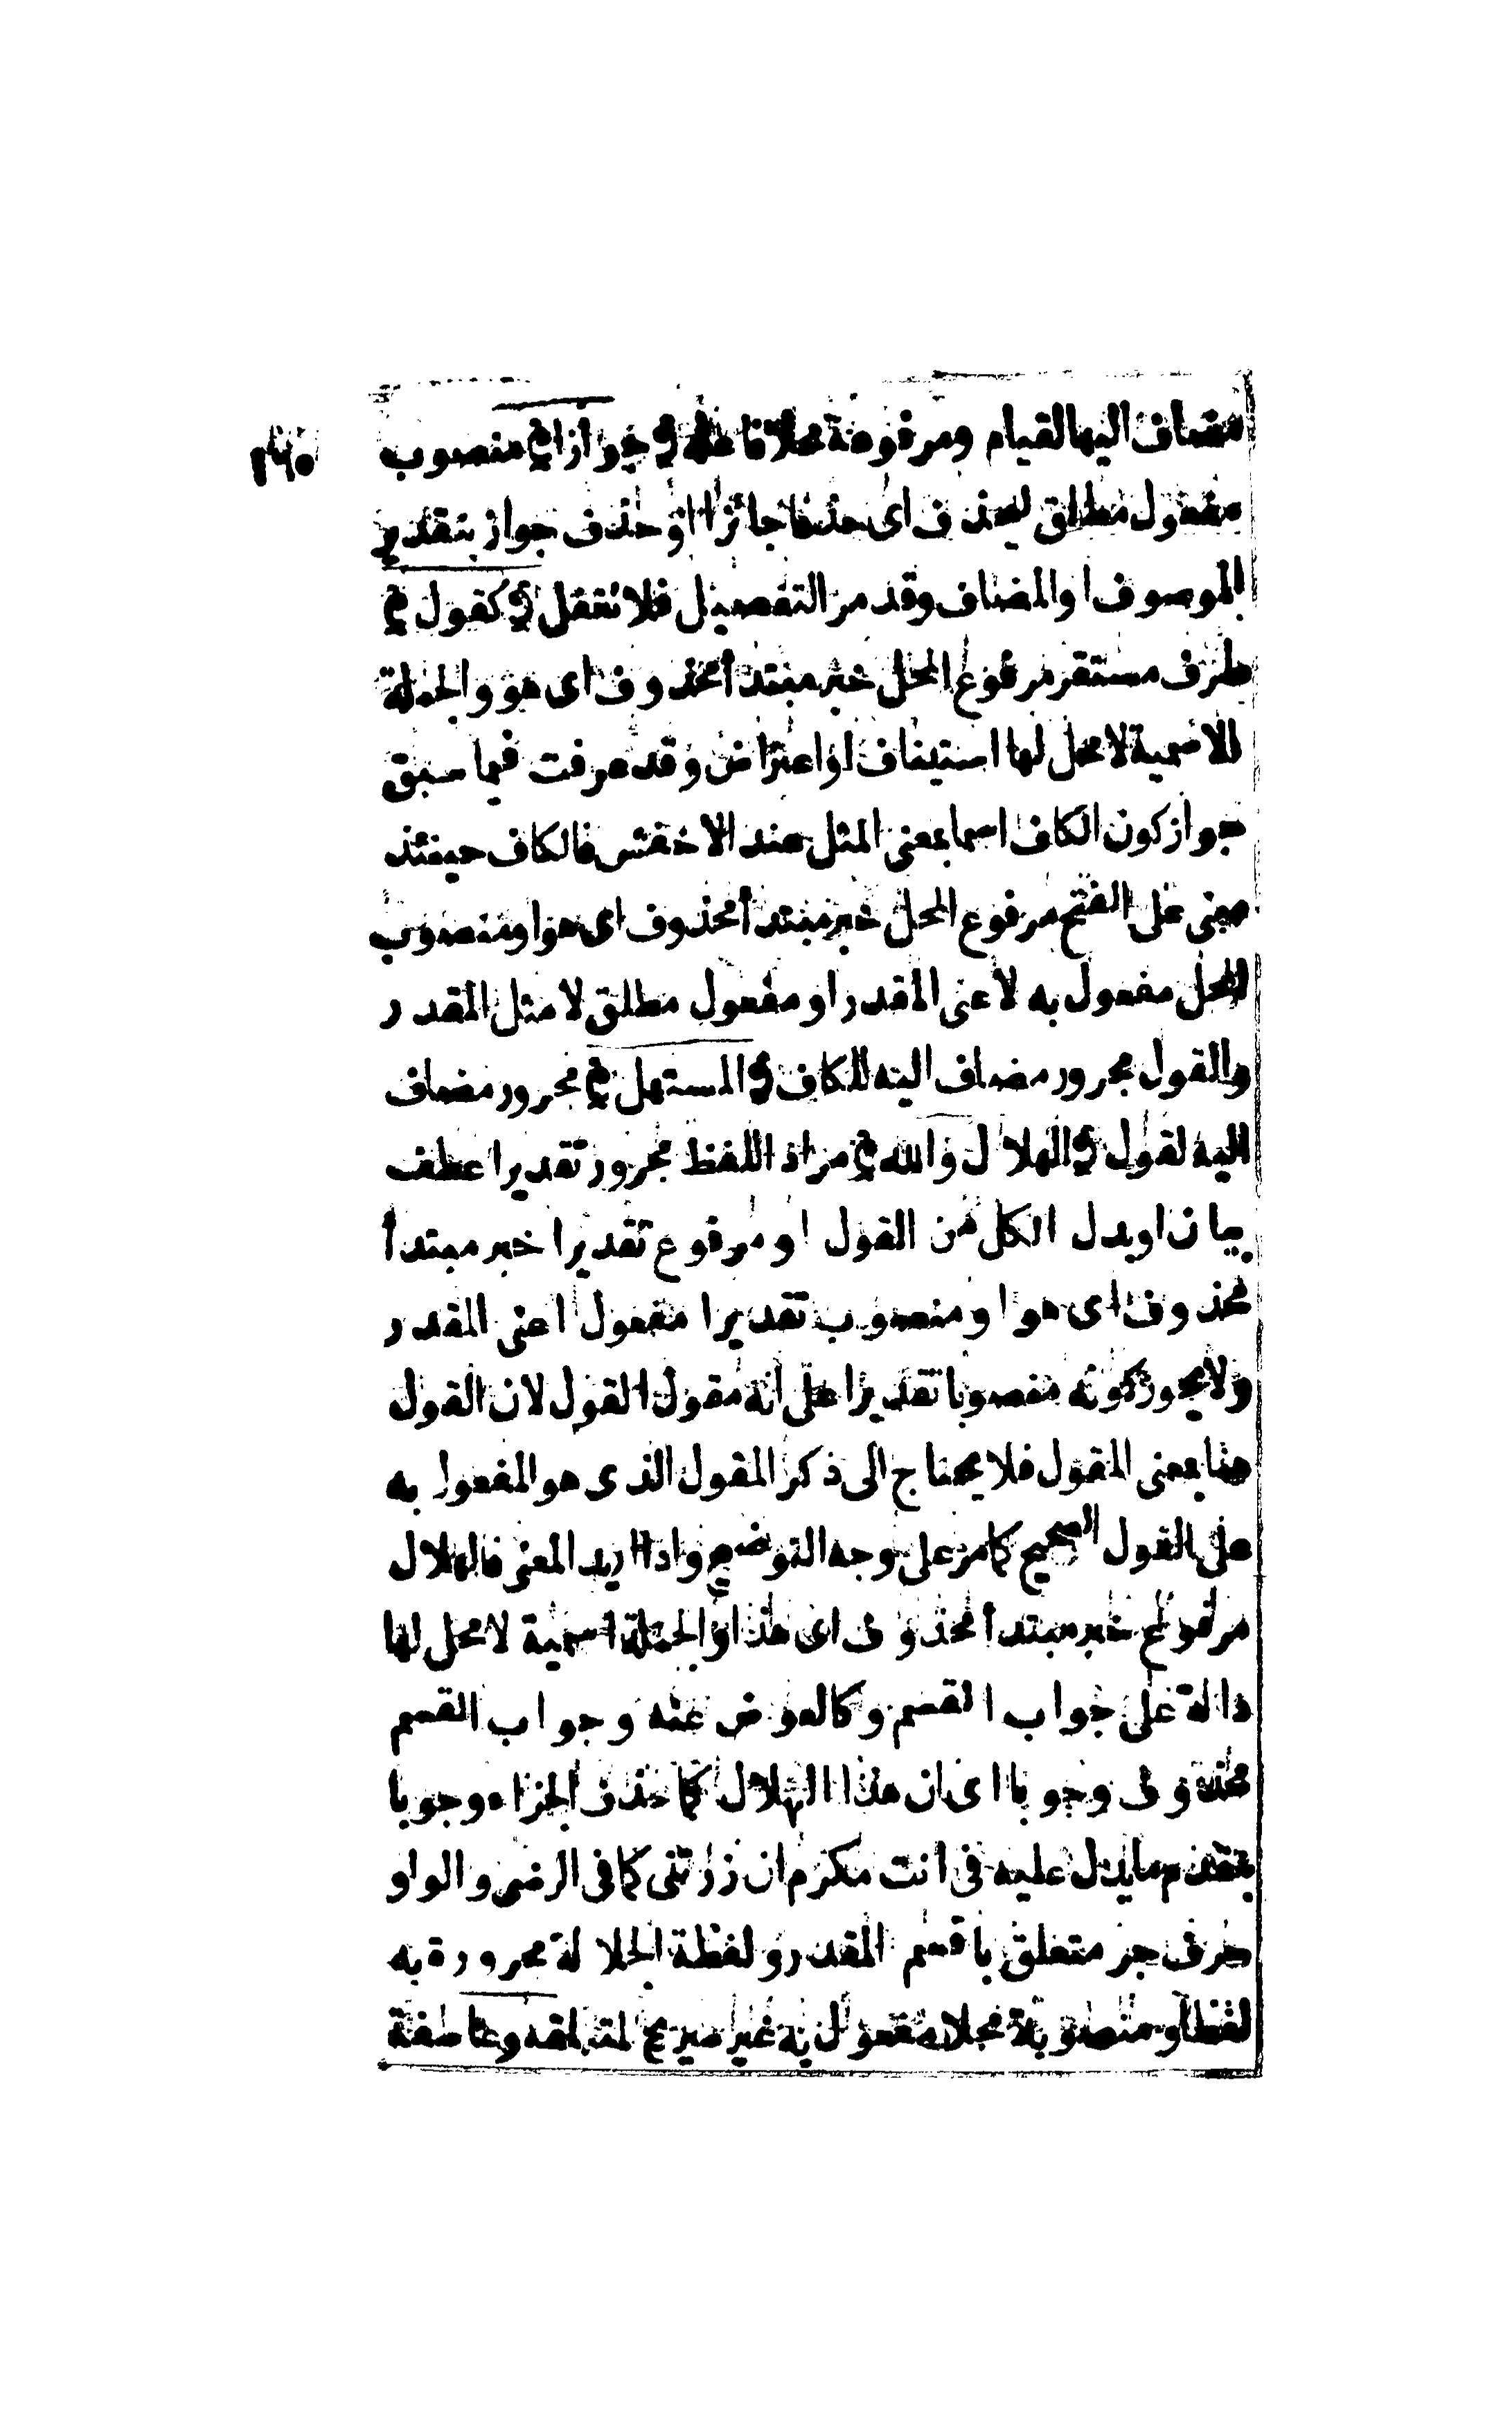 مضاف اليها لقيام ومرفوعة محلا فاعله ﴿ جوازا ﴾ منصوب
مفعول مطلق ليحذف اى حذفا جائزا او حذف جواز بتقدير
الموصوف او المضاف وقد مر التفصيل فلا تغفل ﴿ كقول ﴾
ظرف مستقر مرفوع المحل خبر مبتدأ محذوف اى هو والجملة
الاسمية لا محل لها استيناف او اعتراض وقد عرفت فيما سبق
جواز كون الكاف اسما بمعنى المثل عند الاخفش فالكاف حينئذ
مبنى على الفتح مرفوع المحل خبر مبتدأ محذوف اى هو او منصوب
المحل مفعول به لاعنى المقدر او مفعول مطلق لا مثل المقدر
والقول مجرور مضاف اليه للكاف ﴿ المستهل ﴾ مجرور مضاف
اليه لقول ﴿ الهلال والله ﴾ مراد اللفظ مجرور تقديرا عطف
بيان او بدل الكل من القول او مرفوع تقديرا خبر مبتدأ
محذوف اى هو او منصوب تقديرا مفعول اعنى المقدر
ولا يجوز كونه منصوبا تقديرا على انه مقول القول لان القول
هنا بمعنى المقول فلا يحتاج الى ذكر المقول الذى هو المفعول به
على القول الصحيح كما مر على وجه التوضيح واذا اريد المعنى فالهلال
مرفوع خبر مبتدأ محذوف اى هذا والجملة اسمية لا محل لها
دالة على جواب القسم وكالعوض عنه وجواب القسم
محذوف وجوبا اى ان هذا الهلال كما حذف الجزاء وجوبا
بتقدم ما يدل عليه فى انت مكرم ان زرتنى كما فى الرضى والواو
حرف جر متعلق باقسم المقدر ولفظة الجلالة مجرورة به
لفظا ومنصوبة محلا مفعول به غير صريح لمتعلقه وعاطفة